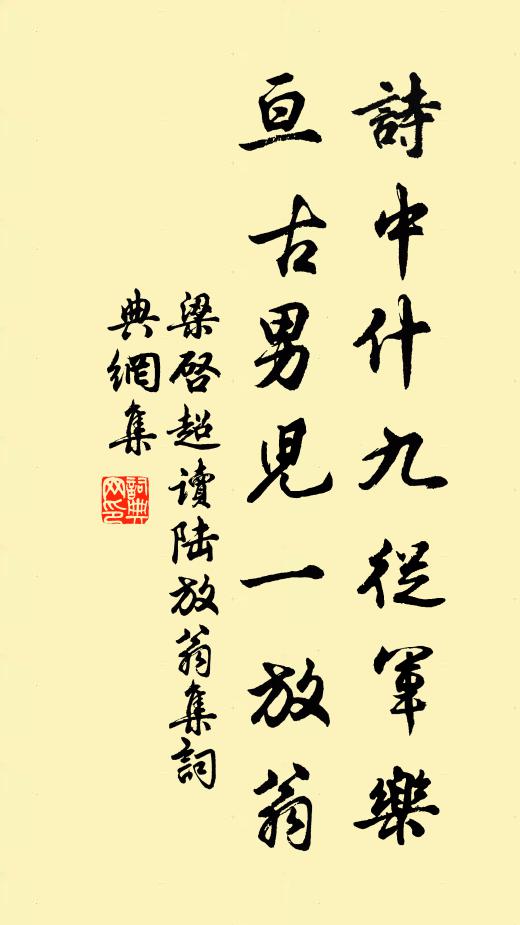 詩中什九從軍樂
亘古男兒一放翁
梁啓超讀陆放翁集詞
典網集
詞典
网印